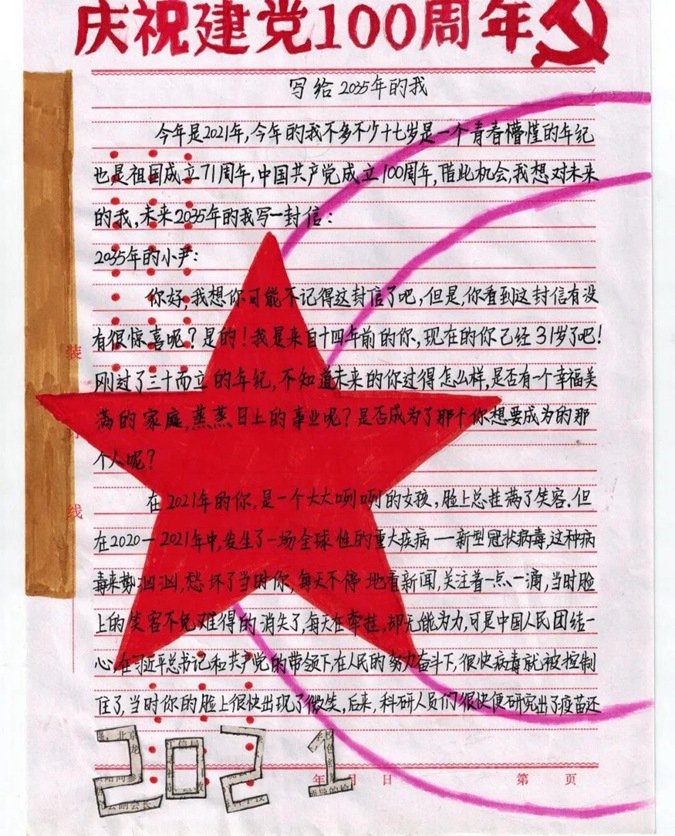 庆祝建党100周年
写给2035年的我
今年是2021年,今年的我不多不少十七岁是一个青春懵懂的年纪
也是祖国成立71周年,中国共产党成立100周年,借此机会,我想对未来
的我,未来2035年的我写一封信:
2035年的小尹:
你好,我想你可能不记得这封信了吧,但是,你看到这封信有没
有很惊喜呢?是的!我是来自十四年前的你,现在的你已经31岁了吧!
刚过了三十而立的年纪,不知道未来的你过得怎么样,是否有一个幸福美
满的家庭,蒸蒸日上的事业呢?是否成为了那个你想要成为的那
个人呢?
在2021年的你,是一个大大咧咧的女孩,脸上总挂满了笑容.但
在2020—2021年中,发生了一场全球性的重大疫病——新型冠状病毒,这种病
毒来势汹汹,愁坏了当时你,每天不停地看新闻,关注着一点一滴,当时脸
上的笑容不免难得的消失了,每天在牵挂,却无能为力,可是中国人民团结一
心,在习近平总书记和共产党的带领下,在人民的努力奋斗下,很快病毒就被控制
住了,当时你的脸上很快出现了微笑,后来,科研人员们很快便研究出了疫苗还
装
线
2021
年 月 日
第 页